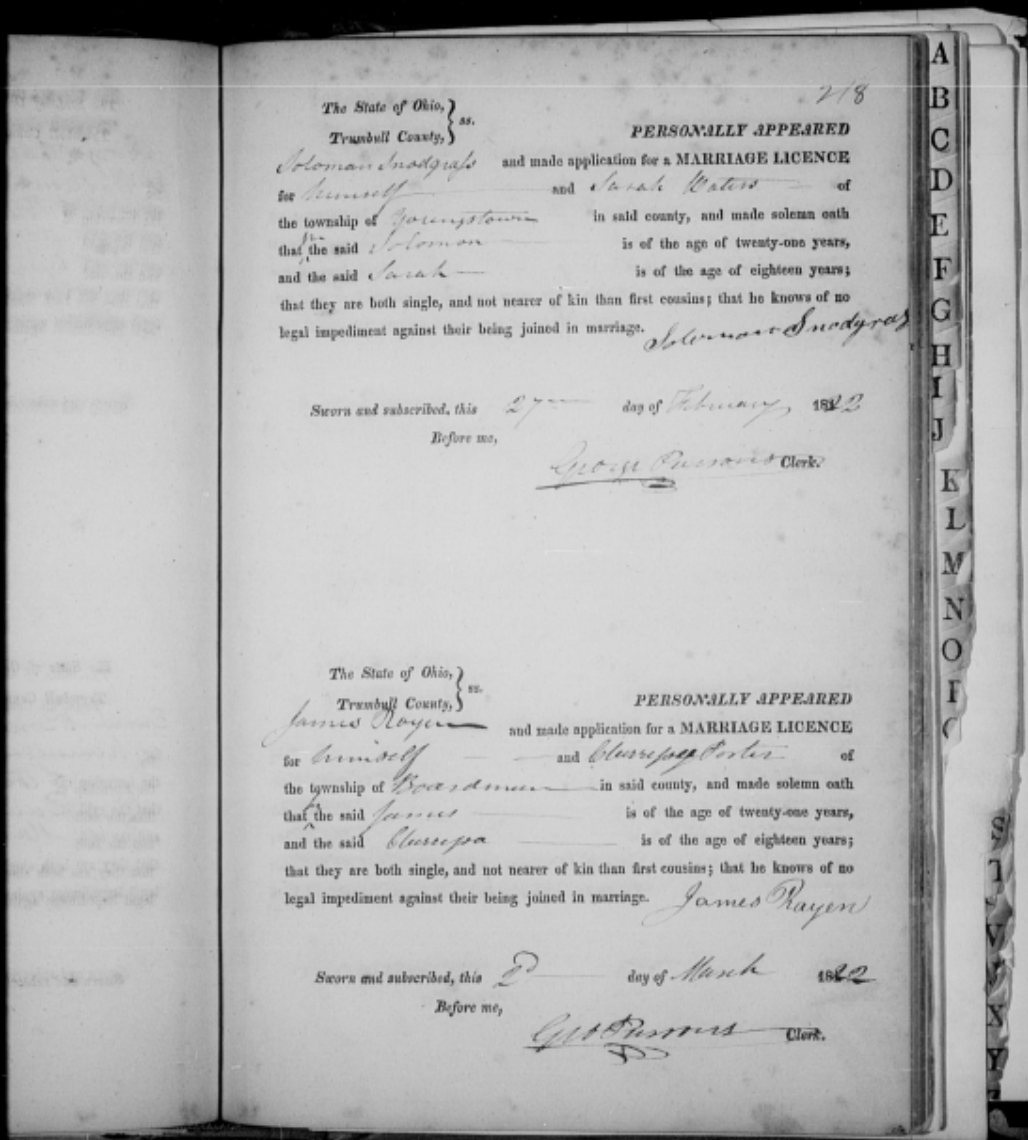 218
The State of Ohio, } ss.
Trumbull County,
PERSONALLY APPEARED
Soloman Snodgrass and made application for a MARRIAGE LICENCE
for himself and Sarah Waters of
the township of Youngstown in said county, and made solemn oath
that he the said Solomon is of the age of twenty-one years,
and the said Sarah is of the age of eighteen years;
that they are both single, and not nearer of kin than first cousins; that he knows of no
legal impediment against their being joined in marriage. Solomon Snodgrass
Sworn and subscribed, this 27 day of February 1822
Before me,
George Parsons Clerk.
The State of Ohio, } ss.
Trumbull County,
PERSONALLY APPEARED
James Rayen and made application for a MARRIAGE LICENCE
for himself and Porter of
the township of Boardman in said county, and made solemn oath
that the said James is of the age of twenty-one years,
and the said is of the age of eighteen years;
that they are both single, and not nearer of kin than first cousins; that he knows of no
legal impediment against their being joined in marriage. James Rayen
Sworn and subscribed, this 2d day of March 1822
Before me,
Geo Parsons Clerk.
A
B
C
D
E
F
G
H
I
J
K
L
M
N
O
P
S
T
V
X
Y